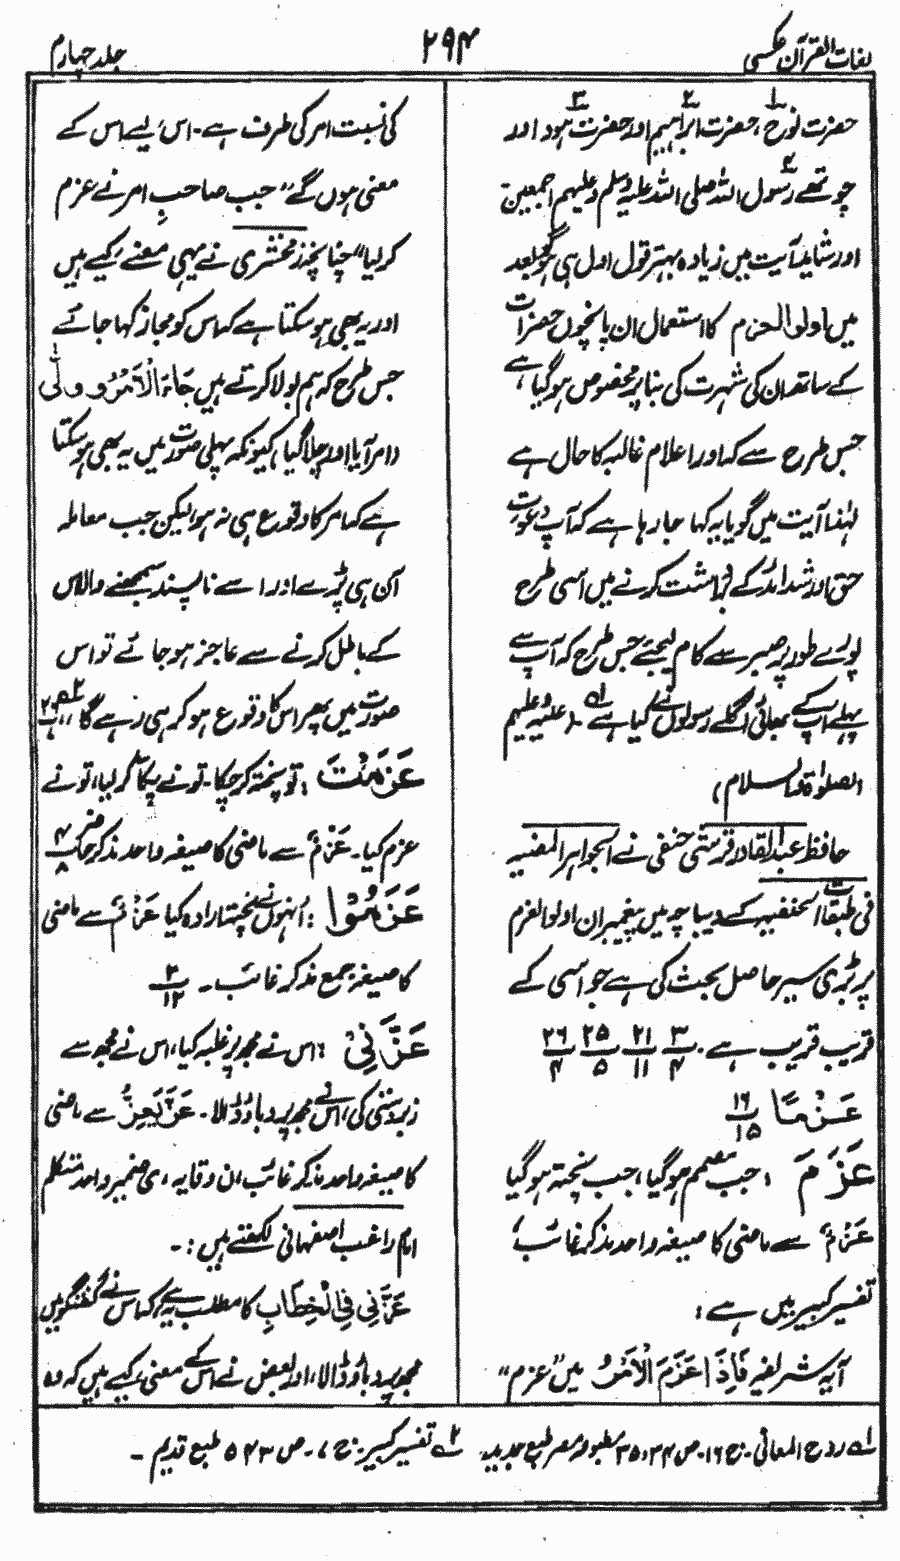 لغات القرآن عکسی
۲۹۴
جلد چہارم
حضرت نوح، حضرت ابراہیم اور حضرت ہود اور
چوتھے رسول اللہ صلی اللہ علیہ وسلم وعلیہم اجمعین
اور شاید آیت میں زیادہ بہتر قول اول ہی ہوگو بعد
میں اولوا العزم کا استعمال ان پانچوں حضرات
کے ساتھ ان کی شہرت کی بنا پر مخصوص ہوگیا ہے
جس طرح سے کہ اور اعلام غالبہ کا حال ہے
لہٰذا آیت میں گویا یہ کہا جارہا ہے کہ آپ دعوت
حق اور شدائد کے برداشت کرنے میں اسی طرح
پورے طور پر صبر سے کام لیجئے جس طرح کہ آپ سے
پہلے آپ کے بھائی اگلے رسولوں نے کیا ہے لہ (علیہ وعلیہم
الصلوٰۃ والسلام)
حافظ عبدالقادر قرشی حنفی نے الجواہر المضیہ
فی طبقات الحنفیہ کے دیباچہ میں پیغمبران اولو العزم
پر بڑی سیر حاصل بحث کی ہے جو اسی کے
قریب قریب ہے۔ ۳/۴ ۲۱/۱۱ ۲۵/۵ ۲۶/۴
عَزْمًا ۱۶/۱۵
عَزَمَ : جب مصمم ہوگیا، جب پختہ ہوگیا
عَزْمٌ سے ماضی کا صیغہ واحد مذکر غائب،
تفسیر کبیر میں ہے :
آیہ شریفہ فَاِذَا عَزَمَ الْاَمْرُ میں "عزم"
کی نسبت امر کی طرف ہے۔ اس لیے اس کے
معنی ہوں گے "جب صاحبِ امر نے عزم
کرلیا" چنانچہ زمخشری نے یہی معنے کیے ہیں
اور یہ بھی ہوسکتا ہے کہ اس کو مجاز کہا جائے
جس طرح کہ ہم بولا کرتے ہیں جَاءَ الْاَمْرُ و ولّٰی
(امر آیا اور چلا گیا) کیونکہ پہلی صورت میں یہ بھی ہوسکتا
ہے کہ امر کا وقوع ہی نہ ہو لیکن جب معاملہ
آن ہی پڑے اور اسے ناپسند سمجھنے والا اس
کے باطل کرنے سے عاجز ہوجائے تو اس
صورت میں پھر اس کا وقوع ہو کر ہی رہے گا"
عَزَمْتَ : تو پختہ کرچکا۔ تو نے پکا کرلیا، تو نے
عزم کیا۔ عَزْمٌ سے ماضی کا صیغہ واحد مذکر حاضر ۴/۸
عَزَمُوْا : اُنہوں نے پختہ ارادہ کیا عَزْمٌ سے ماضی
کا صیغہ جمع مذکر غائب ۔ ۳/۱۲
عَزَّنِیْ : اس نے مجھ پر غلبہ کیا، اس نے مجھ سے
زبردستی کی، اس نے مجھ پر دباؤ ڈالا۔ عَزَّ یَعِزُّ سے ماضی
کا صیغہ واحد مذکر غائب، ن وقایہ، ی ضمیر واحد متکلم
امام راغب اصفہانی لکھتے ہیں :۔
عَزَّنِی فِی الْخِطَابِ کا مطلب یہ ہے کہ اس نے گفتگو میں
مجھ پر دباؤ ڈالا، اور بعض نے اس کے معنی کیے ہیں کہ وہ
لہ روح المعانی ۔ ج ۱۶۔ ص ۳۴، ۳۵ مطبوعہ مصر طبع جدید۔
۲ تفسیر کبیر ۔ ج ۷ ۔ ص ۵۴۳ طبع قدیم ۔